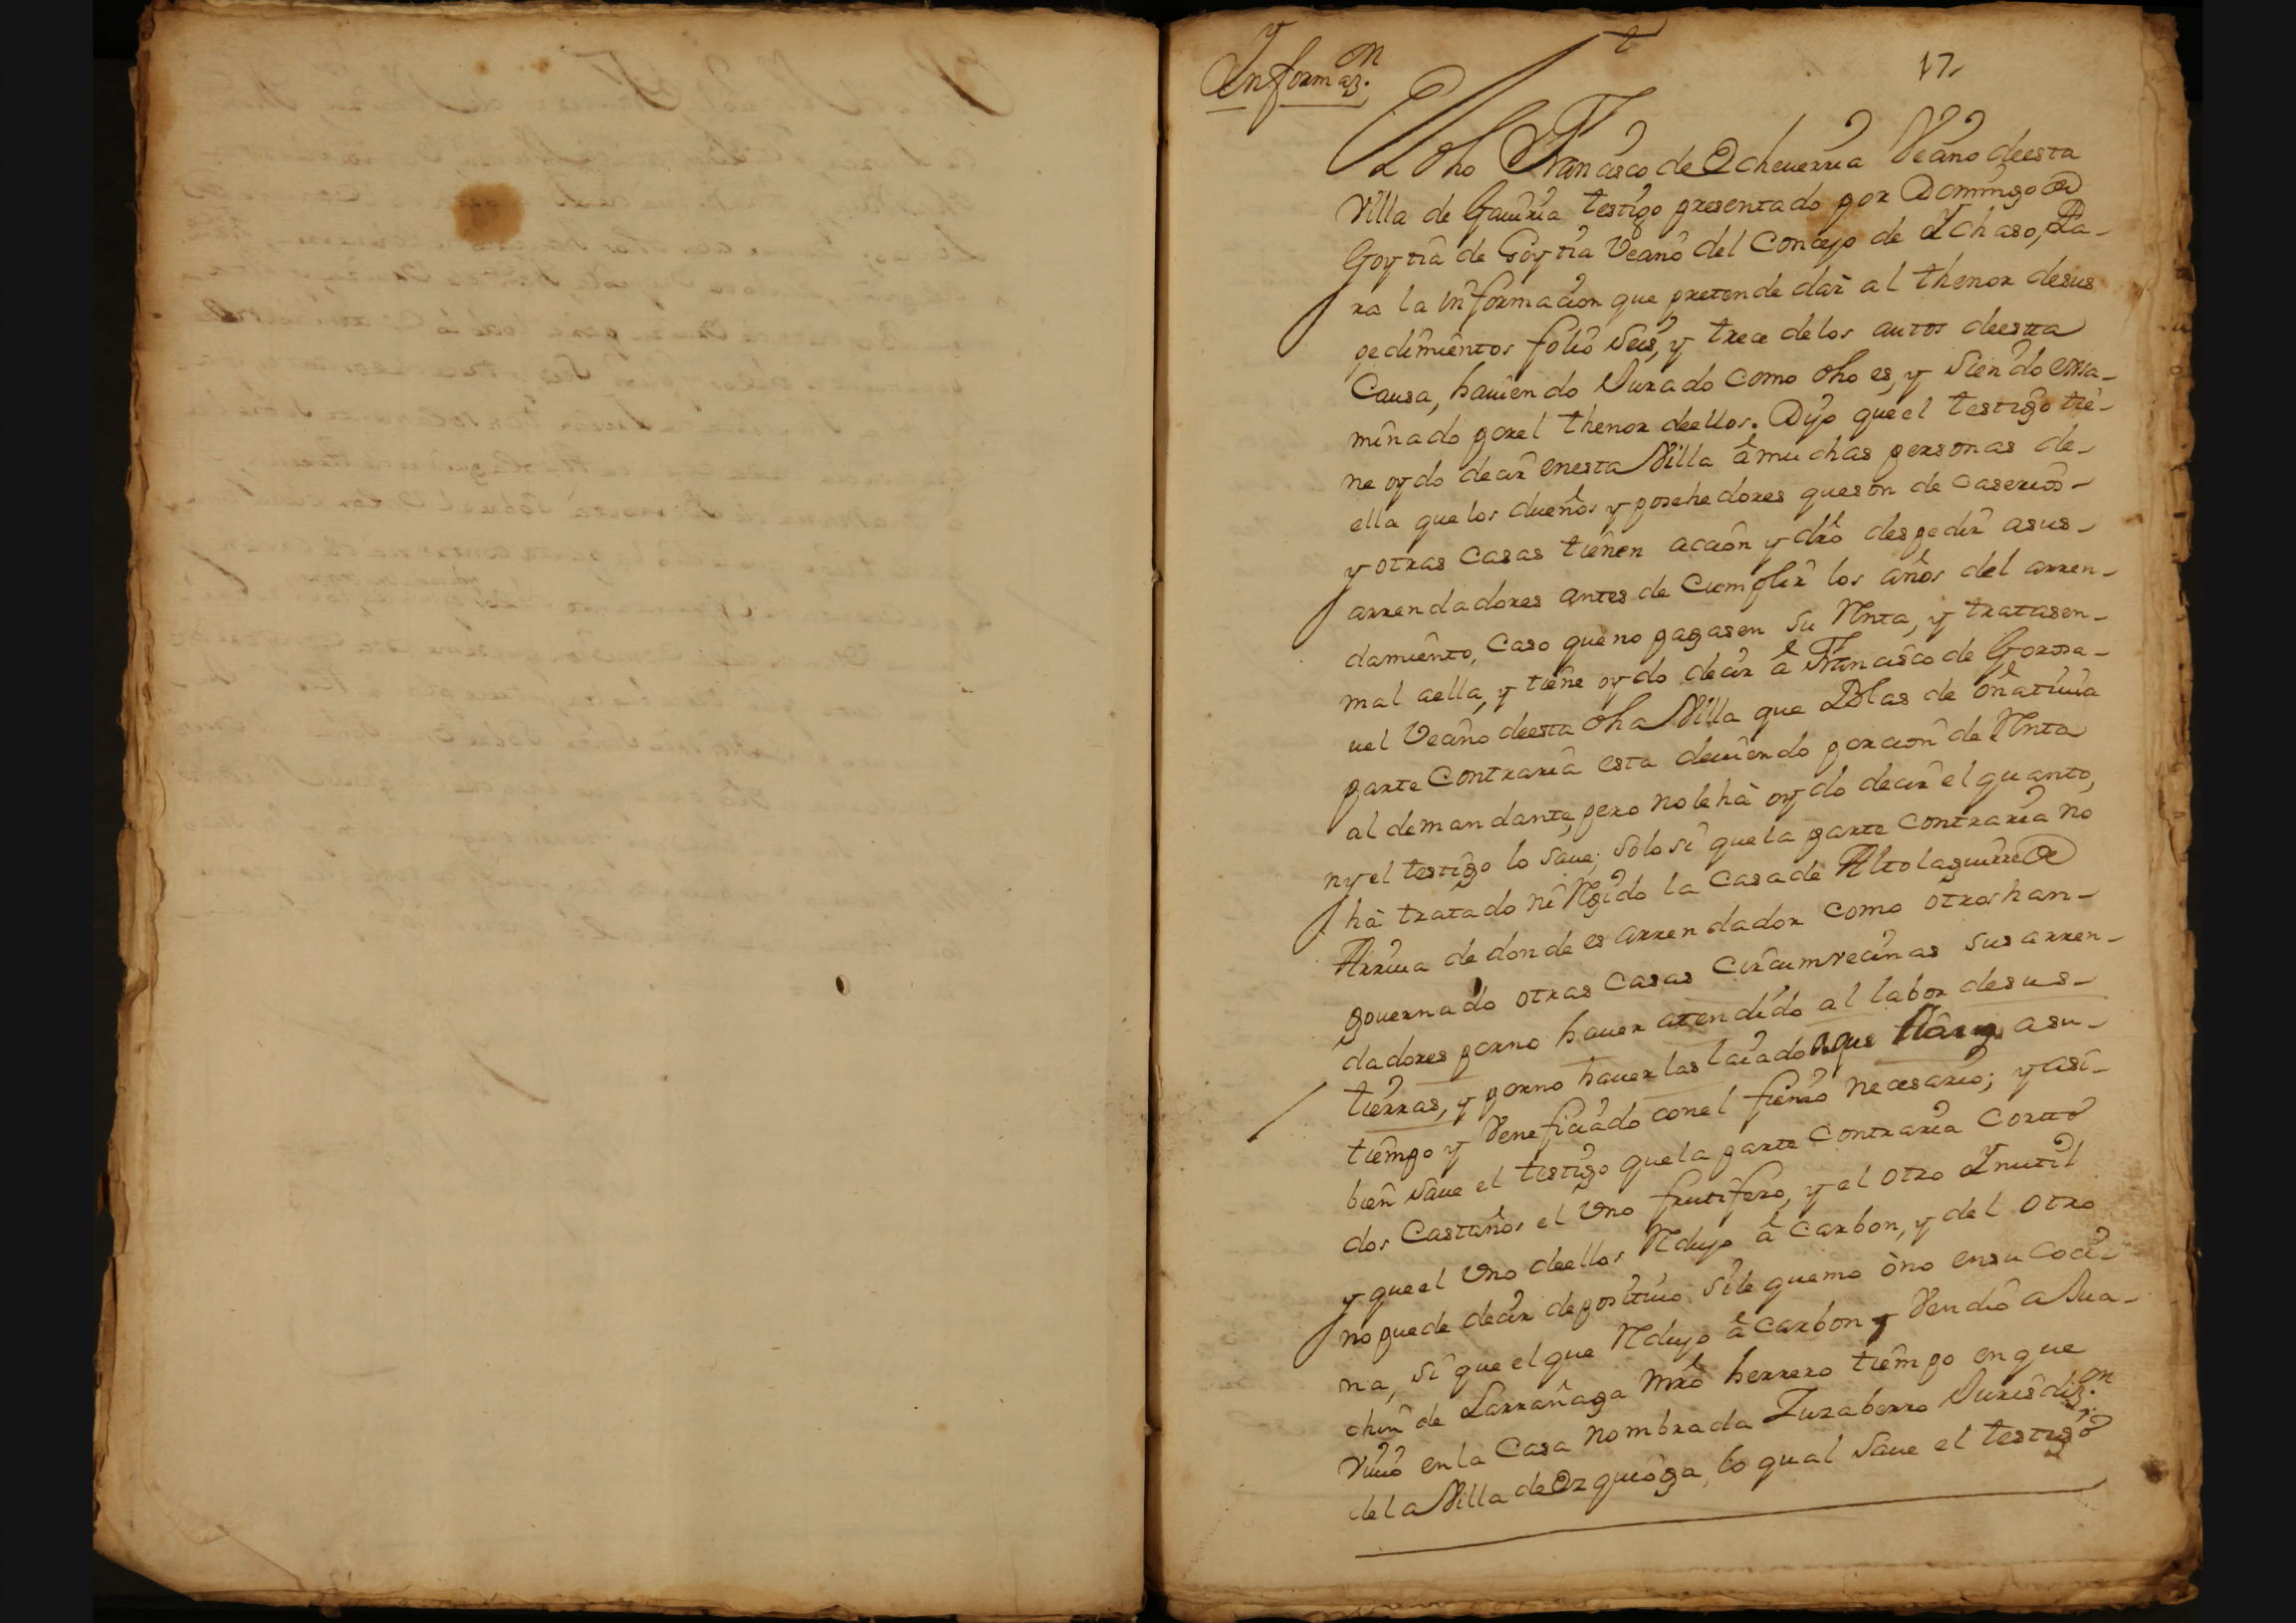 Ynformaz.on
17,
El dho Francisco de Echeuerria Vecino deesta
Villa de Gauiria testigo presentado por Domingo de
Goytia de Goytia Vecino del Concejo de Ychaso, Pa-
ra la informacion que pretende dar al thenor desus
pedimientos folio Seis, y trece delos autos deesta
Causa, hauiendo Jurado como dho es, y siendo exsa-
minado porel thenor deellos. Dijo queel testigo tie-
ne oydo decir enesta Villa â muchas personas de-
ella que los dueños y posehedores queson de Caserios-
y otras Casas tienen accion y dro despedir asus-
arrendadores antes de Cumplir los años del arren-
damiento, Caso queno pagasen su Rnta, y tratasen-
mal aella, y tiene oydo decir â Francisco de Gorosa-
uel Vecino deesta dha Villa que Blas de oñatiuia
parte Contraria esta deuiendo porcion de Rnta
al demandante, pero nole hà oydo decir el quanto,
ny el testigo lo saue; solo si quela parte Contraria no
hà tratado ni Rgido la Casa de Altolaguirre de
Arriua de donde es arrendador como otros han-
gouernado otras Casas Circumvecinas sus arren-
dadores porno hauer atendido al labor desus-
tierras, y porno hauer las laiado asu-
tiempo y Veneficiado conel fiemo necesario; y asi-
bien saue el testigo quela parte Contraria Corttó
dos Castaños el Vno frutifero, y el otro Ynutil
y queel Vno deellos Rdujo â Carbon, y del otro
nopuede decir depositiuo sile quemo òno ensu Coci-
na, si que elque Rdujo â Carbon y Vendio a Jua-
chin de Larrañaga Mro herrero tiempo enque
Viuio enla Casa nombrada Zuzaberro Jurisdiz.on
dela Villa de Ezquioga, lo qual saue el testigo